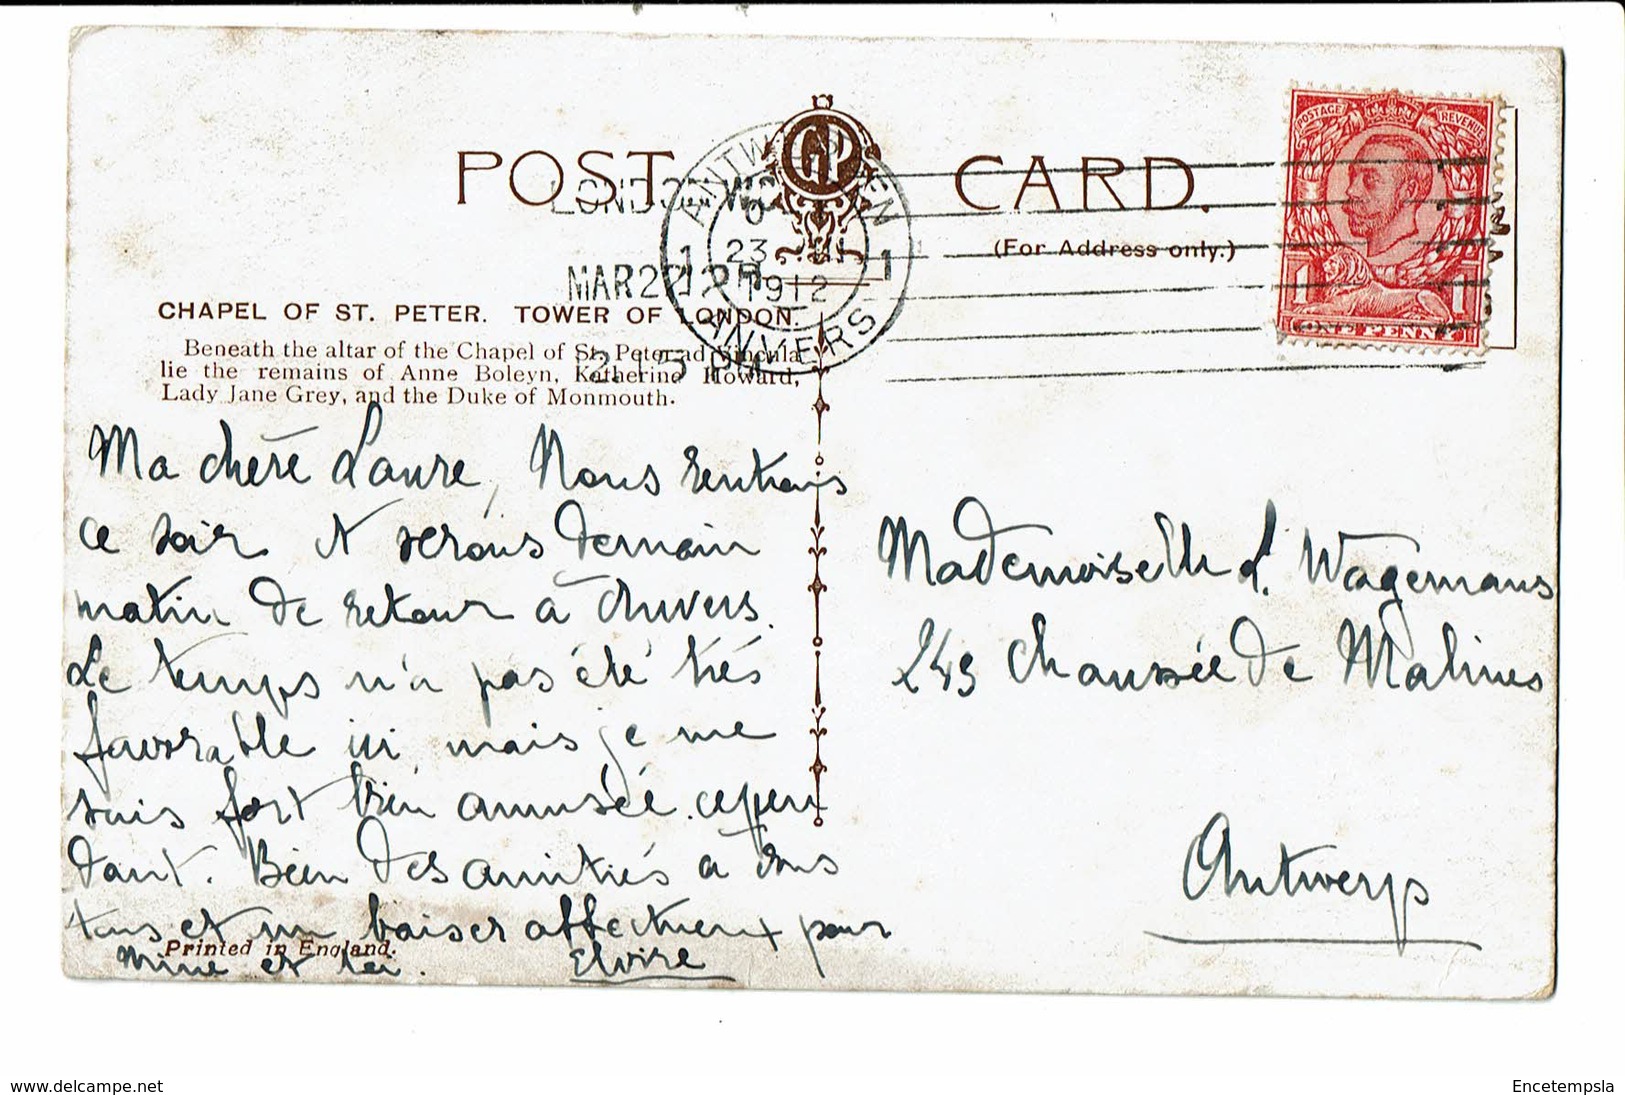 POST CARD.
GP
(For Address only.)
POSTAGE REVENUE
1 1
ONE PENNY
LONDON W.C
MAR 22 12
12.15 PM
ANTWERPEN
1 1
23 III
1912
ANVERS
CHAPEL OF ST. PETER. TOWER OF LONDON.
Beneath the altar of the Chapel of St. Peter ad Vincula
lie the remains of Anne Boleyn, Katherine Howard,
Lady Jane Grey, and the Duke of Monmouth.
Ma chère Laure, Nous rentrons
ce soir et serons demain
matin de retour à Anvers.
Le temps n'a pas été très
favorable ici, mais je me
suis fort bien amusée cepen
dant. Bien des amitiés à vous
tous et un baiser affectueux pour
Mme et toi. Elvire
Printed in England.
Mademoiselle L. Wagemans
243 Chaussée de Malines
Antwerp
www.delcampe.net
Encetempsla